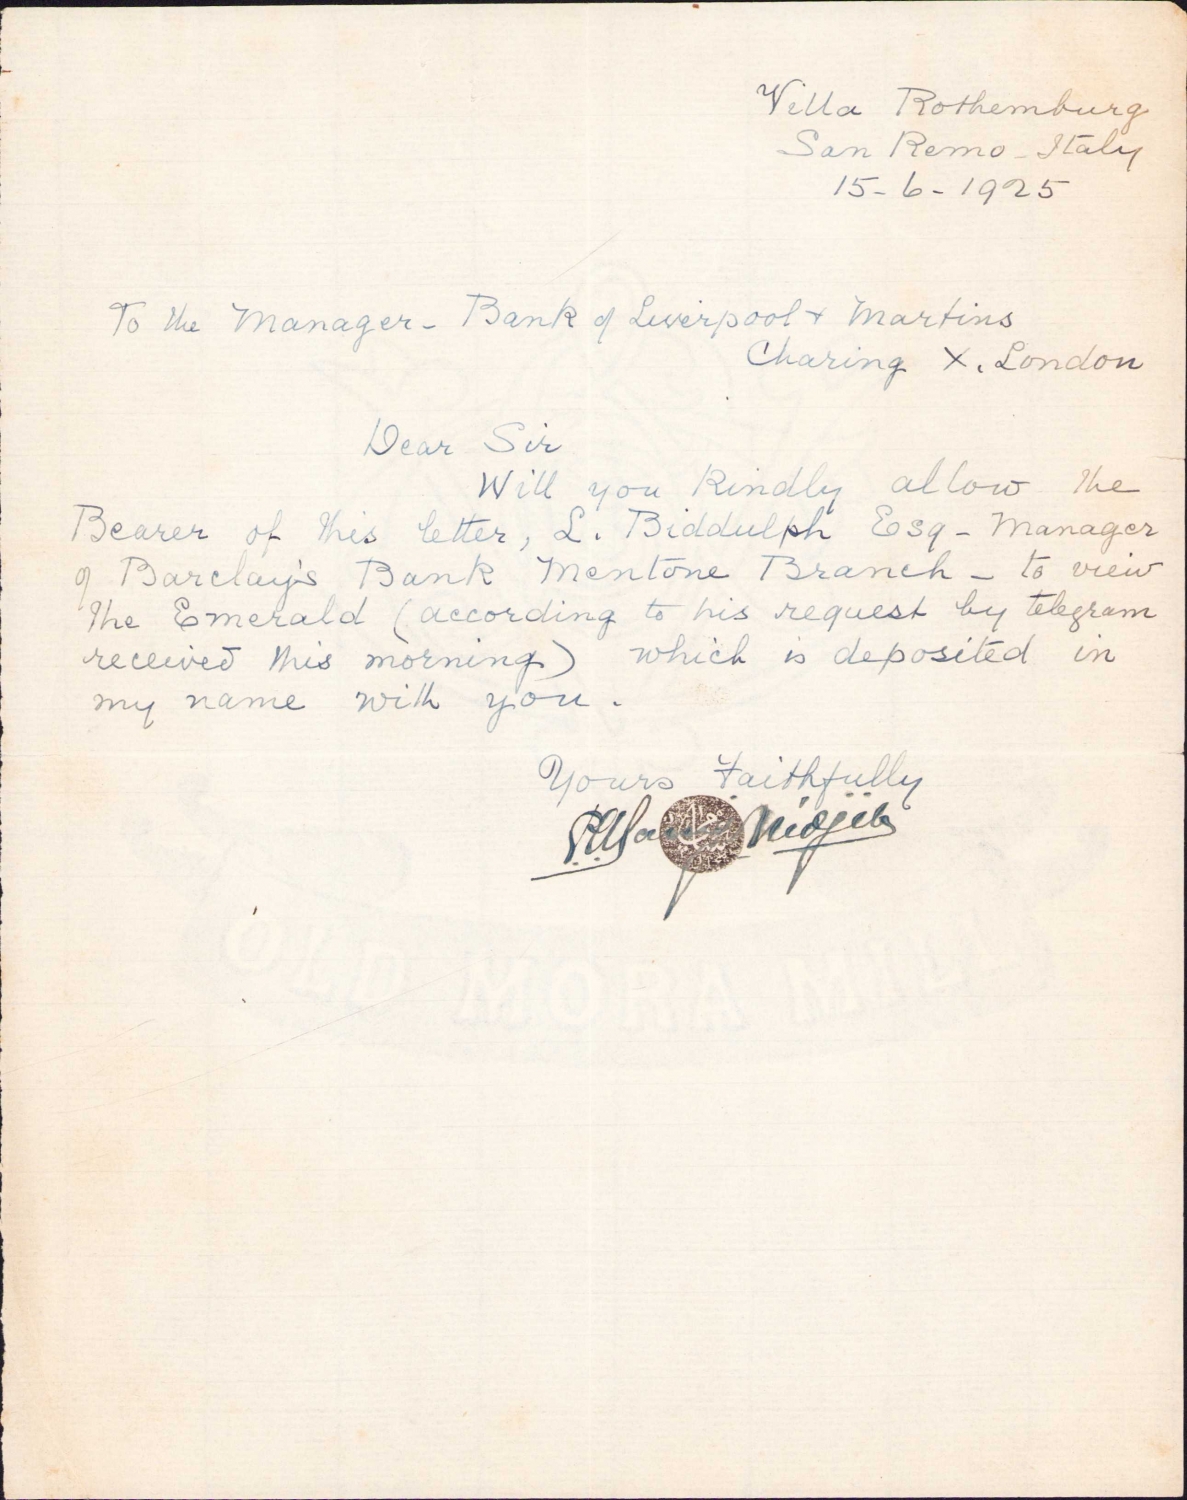 Villa Rothemburg
San Remo - Italy
15-6-1925
To the Manager - Bank of Liverpool + Martins
Charing X. London
Dear Sir
Will you kindly allow the
Bearer of this letter, L. Biddulph Esq - Manager
of Barclay's Bank Mentone Branch - to view
the Emerald (according to his request by telegram
received this morning) which is deposited in
my name with you.
Yours Faithfully
OLD MORA MILL